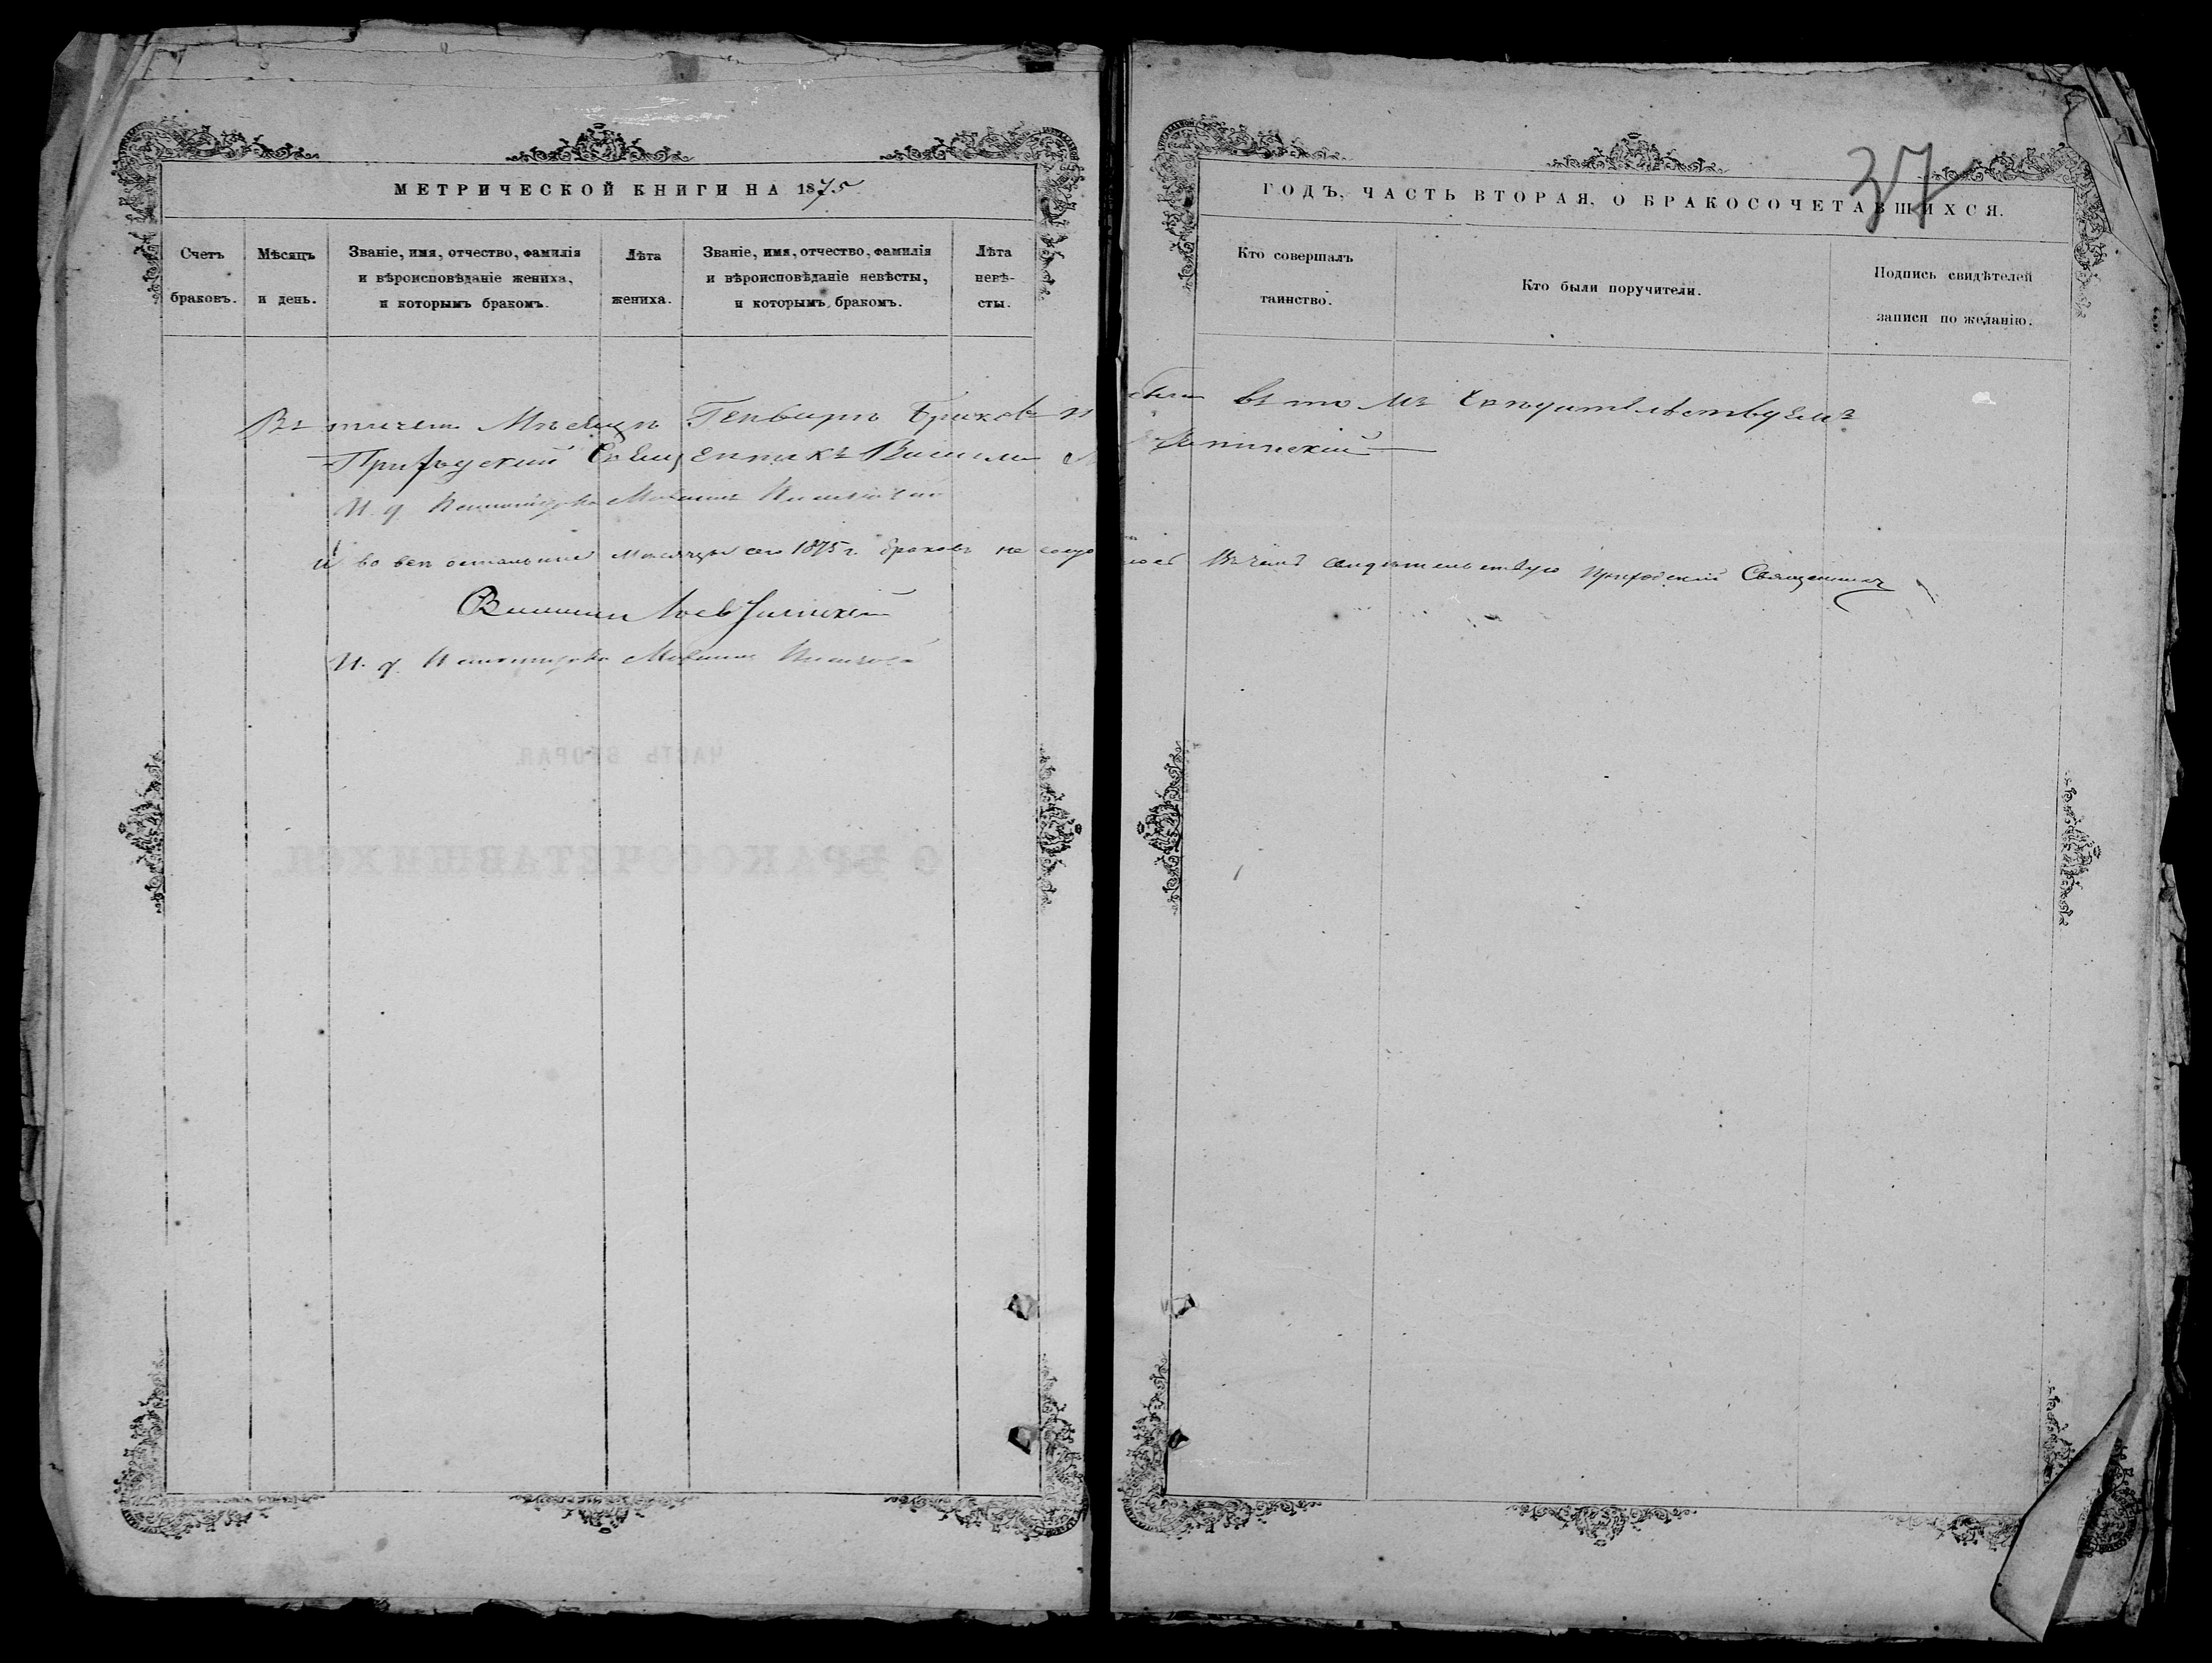 МЕТРИЧЕСКОЙ КНИГИ НА 1875
Счетъ браковъ.
Мѣсяцъ и день.
Званіе, имя, отчество, фамилія и вѣроисповѣданіе жениха, и которымъ бракомъ.
Лѣта жениха.
Званіе, имя, отчество, фамилія и вѣроисповѣданіе невѣсты, и которымъ бракомъ.
Лѣта невѣ-
сты.
Мѣсяца Генваря Браковъ
Приходский Священникъ Василий
И. д.
и во всѣ остальные мѣсяцы сего 1875 г. браковъ не
Василий
И. д.
ЧАСТЬ ВТОРАЯ
О БРАКОСОЧЕТАВШИХСЯ
37
ГОДЪ, ЧАСТЬ ВТОРАЯ, О БРАКОСОЧЕТАВШИХСЯ.
Кто совершалъ таинство.
Кто были поручители.
Подпись свидѣтелей записи по желанію.
было въ томъ Свидѣтельствуемъ
Въ чемъ свидѣтельствую приходский Священникъ